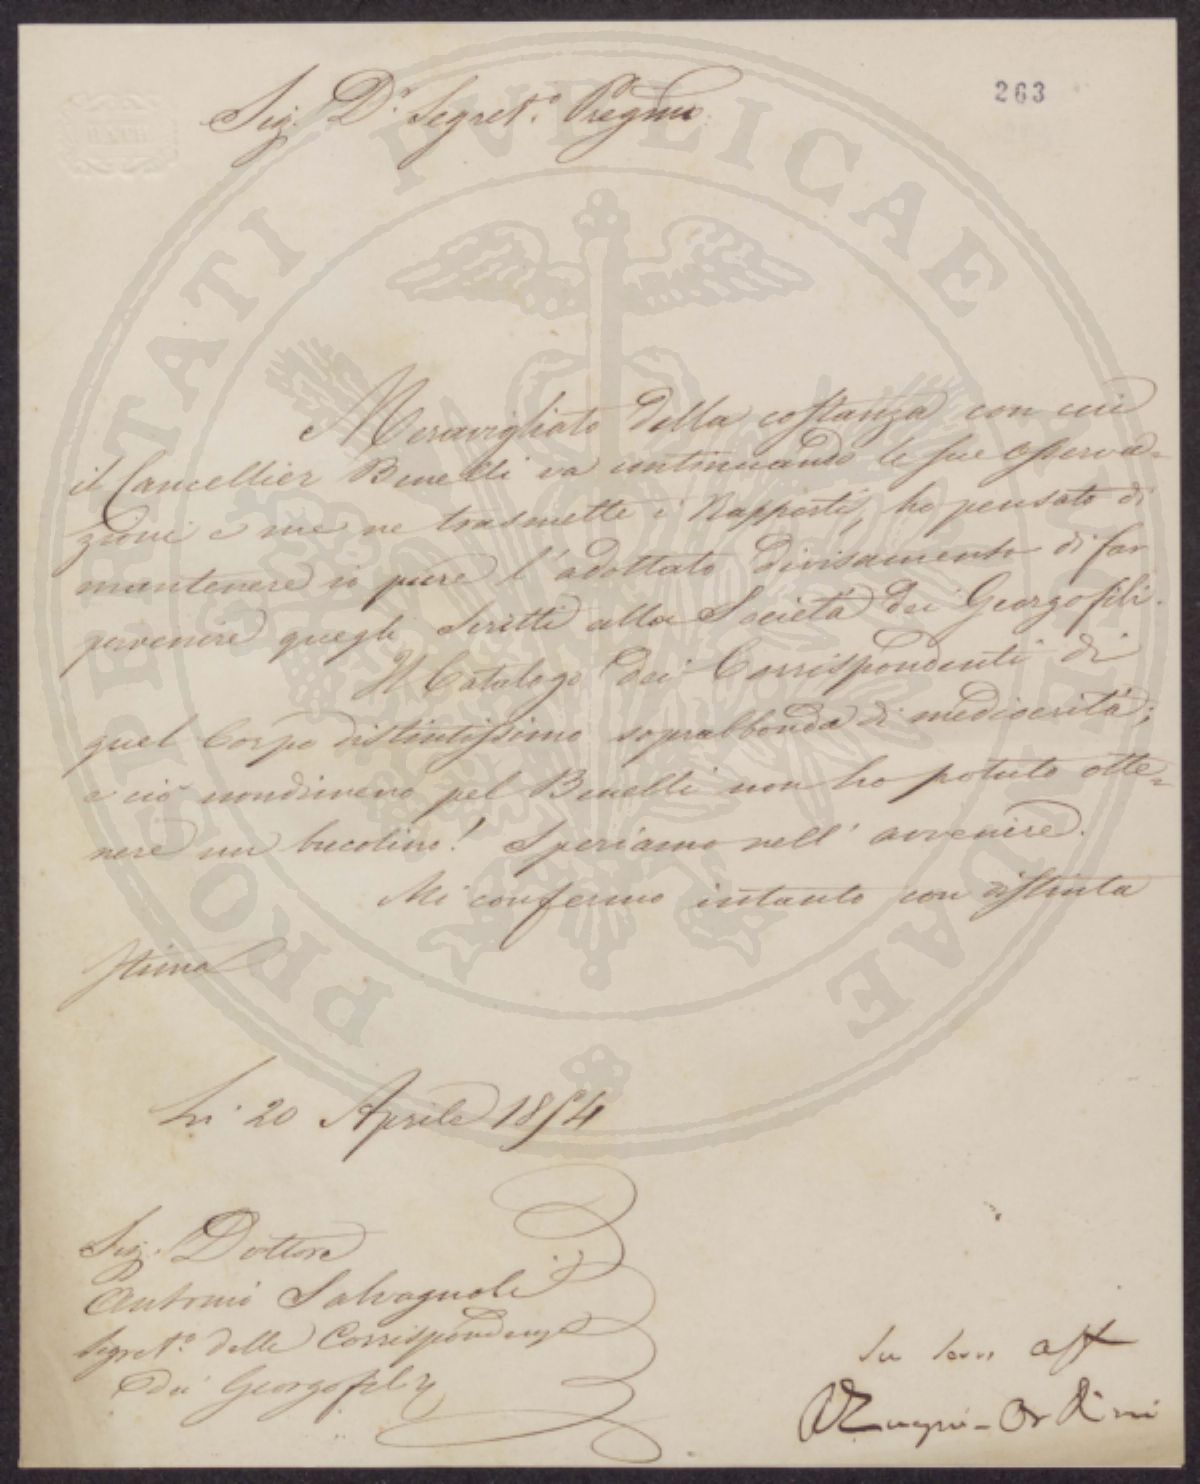 263
Sig. Dr. Segret.o Pregmo
Meravigliato della costanza con cui
il Cancellier Benelli va continuando le sue Osserva=
zioni e me ne trasmette i Rapporti, ho pensato di
mantenere io pure l'adottato divisamento di far
pervenire quegli scritti alla Società dei Georgofili.
Il Catalogo dei Corrispondenti di
quel Corpo distintissimo soprabbonda di mediocrità;
e ciò nondimeno pel Benelli non ho potuto otte=
nere un bucolino! Speriamo nell'avvenire.
Mi confermo intanto con distinta
stima
Li 20 Aprile 1854
Sig. Dottore
Antonio Salvagnoli
Segret.o delle Corrispondenze
dei Georgofili
Suo aff
AZuccagni-Orlandini
PROSPERITATI PVBLICAE AVGENDAE